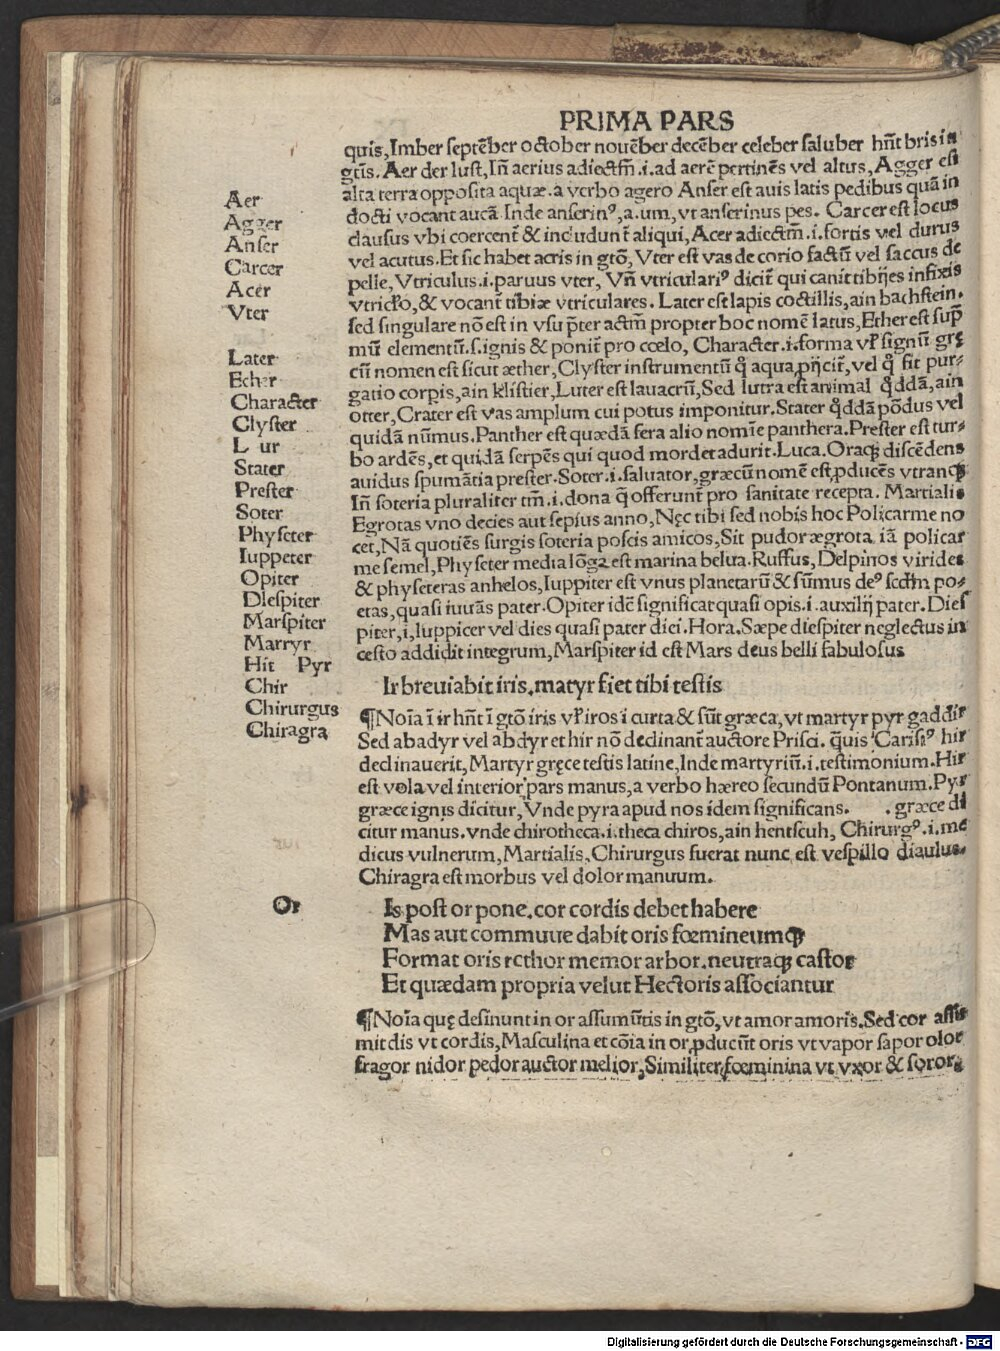 PRIMA PARS
quis, Imber septēber october nouēber decēber celeber saluber hn̄t bris in
gtis. Aer der lust, In̄ aerius adiectm̄ .i. ad aerē pertinēs vel altus, Agger est
alta terra opposita aquæ. a verbo agero Anser est auis latis pedibus quā in
docti vocant aucā Inde anserinꝰ, a. um, vt anserinus pes. Carcer est locus
clausus vbi coercent̄ & includunt̄ aliqui, Acer adiectm̄ .i. fortis vel durus
vel acutus. Et sic habet acris in gtō, Vter est vas de corio factū vel saccus de
pelle, Vtriculus .i. paruus vter, Vn̄ vtriculariꝰ dicit̄ qui canit tibijes infixis
vtriclo, & vocant̄ tibiæ vtriculares. Later est lapis coctillis, ain bachstein.
sed singulare nō est in vsu p̄ter actm̄ propter hoc nomē latus, Ether est sup̄
mū elementū .s. ignis & ponit̄ pro cœlo, Character .i. forma vl̄ signū grę
cū nomen est sicut æther, Clyster instrumentū q̄ aqua ꝓijcit̄, vel q̄ fit pur-
gatio corpis, ain klistier, Luter est lauacrū, Sed lutra est animal q̄ddā, ain
otter, Crater est vas amplum cui potus imponitur. Stater q̄ddā pōdus vel
quidā nūmus. Panther est quædā fera alio nomīe panthera. Prester est tur-
bo ardēs, et quidā serpēs qui quod mordet adurit. Luca. Oraqꝫ discēdens
auidus spumātia prester. Soter .i. saluator, græcū nomē est, ꝓducēs vtranqꝫ
In̄ soteria pluraliter tm̄ .i. dona q̄ offerunt̄ pro sanitate recepta. Martialis
Egrotas vno decies aut sepius anno, Nęc tibi sed nobis hoc Policarme no
cet, Nā quotiēs surgis soteria poscis amicos, Sit pudor ægrota iā policar
me semel, Physeter media lōga est marina belua. Ruffus, Delpinos virides
& physeteras anhelos, Iuppiter est vnus planetarū & sūmus deꝰ scdm̄ po-
etas, quasi iuuās pater. Opiter idē significat quasi opis .i. auxilij pater. Dies
piter, i, Iuppicer vel dies quasi pater diei. Hora. Sæpe diespiter neglectus in
cesto addidit integrum, Marspiter id est Mars deus belli fabulosus
Aer
Agger
Anser
Carcer
Acer
Vter
Later
Ether
Character
Clyster
L ur
Stater
Prester
Soter
Physeter
Iuppeter
Opiter
Diespiter
Marspiter
Marryr
Hit Pyr
Chir
Chirurgus
Chiragra
Ir breuiabit iris, matyr fiet tibi testis
¶Noīa ī ir hn̄t ī gtō iris vl̄ iros i curta & sūt græca, vt martyr pyr gaddir
Sed abadyr vel abdyr et hir nō declinant̄ auctore Prisci. q̄uis Carisiꝰ hir
declinauerit, Martyr gręce testis latine, Inde martyriū .i. testimonium. Hir
est vola vel interior pars manus, a verbo hæreo secundū Pontanum. Pyr
græce ignis dicitur, Vnde pyra apud nos idem significans. . græce di
citur manus. vnde chirotheca .i. theca chiros, ain hentscuh, Chirurgꝰ .i. me
dicus vulnerum, Martialis, Chirurgus fuerat nunc est vespillo diaulus.
Chiragra est morbus vel dolor manuum.
Or
Is post or pone. cor cordis debet habere
Mas aut commuue dabit oris fœmineumqꝫ
Format oris rethor memor arbor. neutraqꝫ castor
Et quædam propria velut Hectoris associantur
¶Noīa quę desinunt in or assumūt is in gtō, vt amor amoris. Sed cor assu
mit dis vt cordis, Masculina et cōia in or ꝓducūt oris vt vapor sapor olor
fragor nidor pedor auctor melior, Similiter fœminina vt vxor & soror,
Digitalisierung gefördert durch die Deutsche Forschungsgemeinschaft - DFG